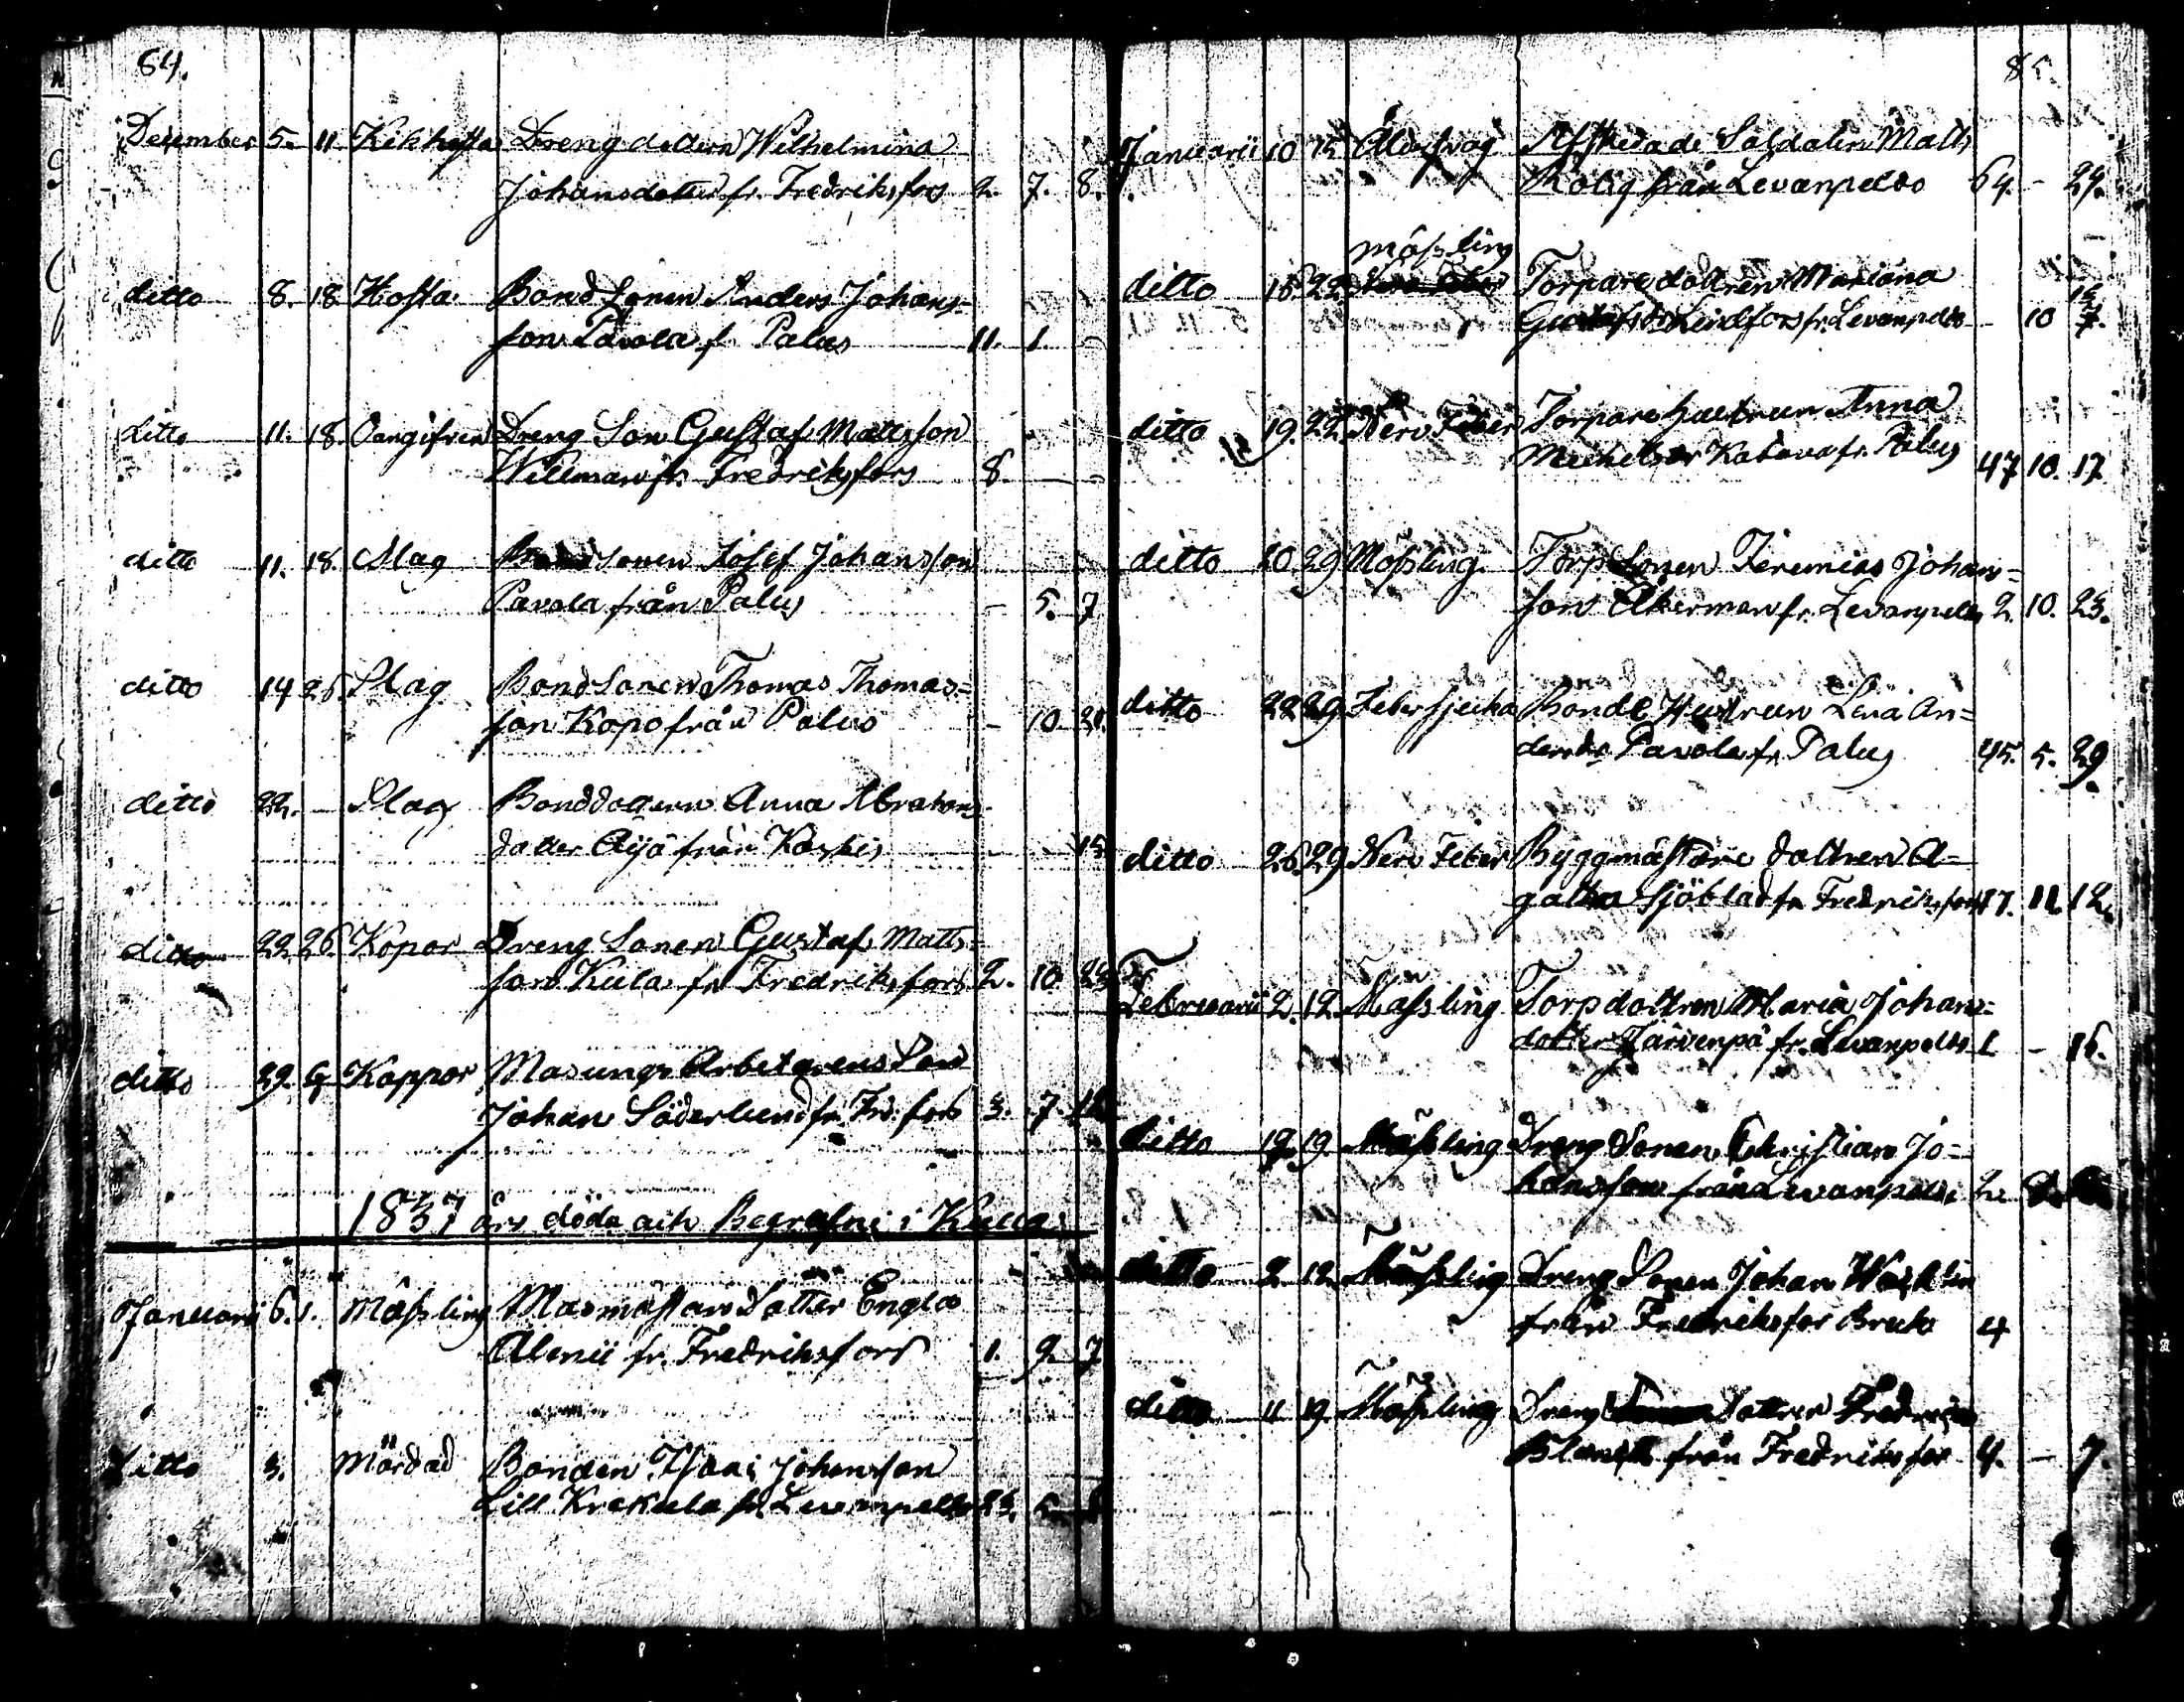 64.
December 5. 11. Kikhosta Dreng dottern Wilhelmina
Johansdotter fr. Fredriksfors 2. 7. 8.
ditto 8. 18 Hosta Bond Sonen Anders Johans-
son Pavola fr. Palus 11. 1. -
ditto 11. 18. Oangifven Dreng Son Gustaf Mattsson
Willman fr. Fredriksfors 8. - -
ditto 11. 18. Slag Bond Sonen Josef Johansson
Pavola från Palus - 5. 7
ditto 14 26. Slag Bond Sonen Thomas Thomas-
son Kopo från Palus - 10. 20.
ditto 22. - Slag Bonddottern Anna Abrahams-
dotter Äijö från Koskis - - 15
ditto 22 26. Kopor Dreng Sonen Gustaf Matts-
son Kula fr Fredriksfors 2. 10 23
ditto 29. Koppor Masungs Arbetarens Son
Johan Söderlund fr. Fr. fors 3. 7. 12
1837 års döda och Begrafne i Kulla
Januarii 6. 1. Mässling Masmästare Dotter Engla
Alenii fr. Fredriksfors 1. 9. 7
Ditto 3. Mördad Bonden Isaac Johansson
Lill Krekula fr. Levanpelto 23. 5.
85.
Januarii 10 15 Ålderdom Afskedade Soldaten Matts
Rolig från Levanpelto 64. - 29.
Mässling
ditto 18. 22 Torpare dottren Mariana
Gustafsdr Lindfors fr. Levanpelto - 10 7.
ditto 19. 22. Nerv Feber Torpare hustrun Anna
Michelsdr Katava fr. Palus 47 10. 17.
ditto 20. 29 Mässling Torp Sonen Jeremias Johan-
son Åkerman fr. Levanpelto 2. 10. 23.
ditto 22 29 Feber sjuka Bonde Hustrun Lena An-
dersdr Pavola fr. Palus 45. 5. 29.
ditto 26. 29 Nerv Feber Byggmästare dottren A-
gatha Sjöblad fr Fredriksfors 17. 11. 12.
Februarii 2. 12. Mässling Torpdottren Maria Johans-
dotter Järvenpä fr. Levanpelto 1 - 16.
ditto 12. 19. Mässling Dreng Sonen Christian Jo-
hansson från Levanpelto 2.
ditto 2. 12. Mässling Dreng Sonen Johan
från Fredriksfors Bruk 4
ditto 11 19. Mässling Dreng Dottren
från Fredriksfors 4. - 7.